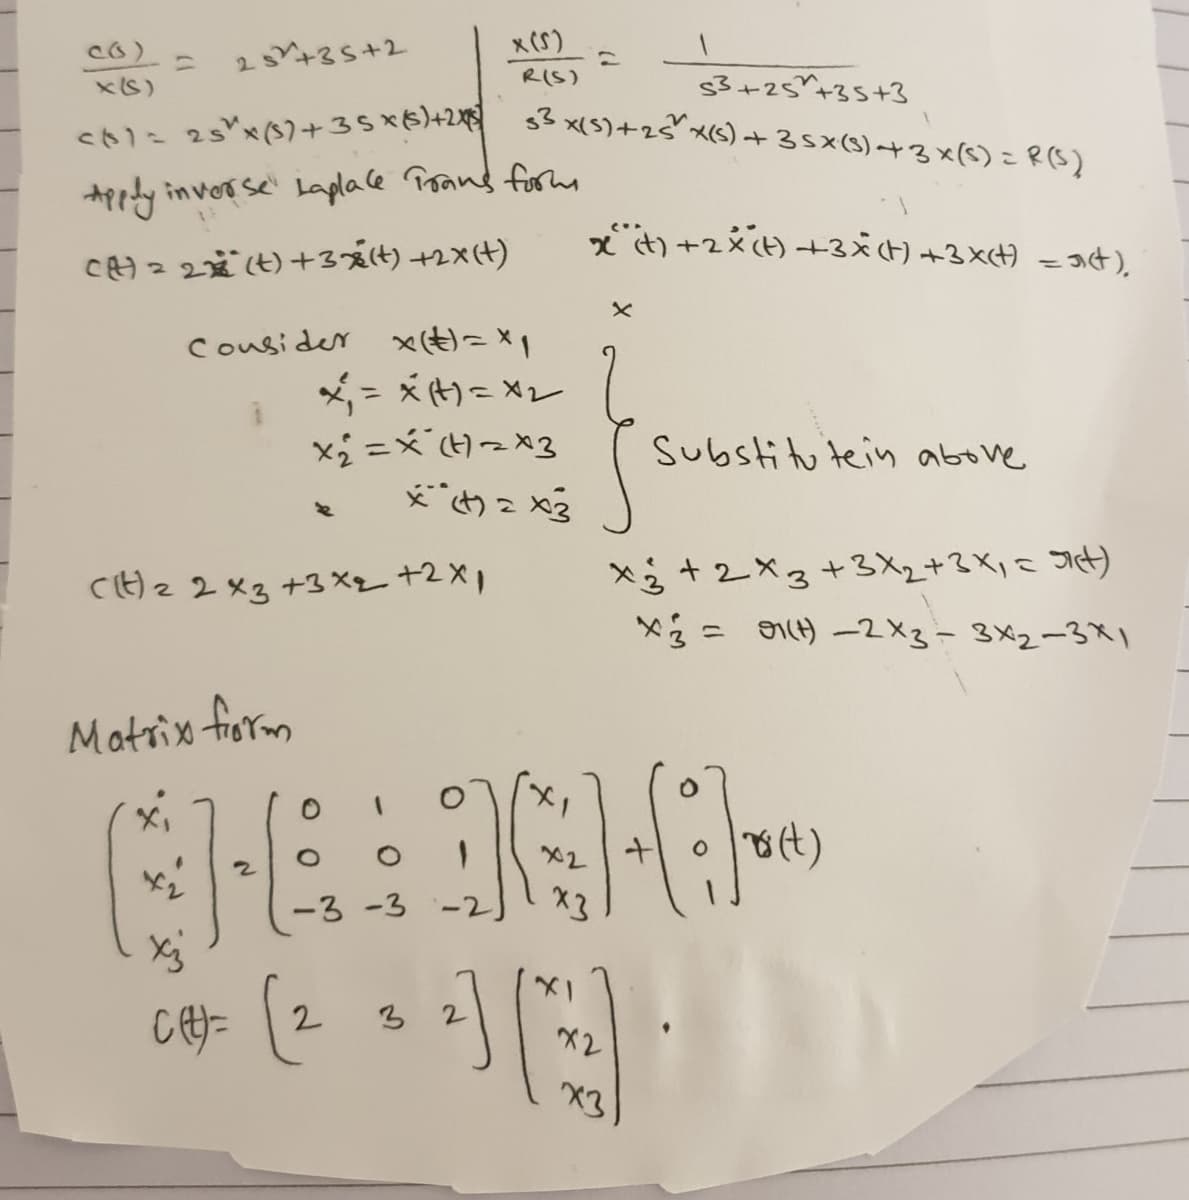 C(s)/X(s) = 2s²+3s+2 | X(s)/R(s) = 1/(s³+2s²+3s+3)
C(s) = 2s²X(s)+3sX(s)+2X(s) | s³X(s)+2s²X(s)+3sX(s)+3X(s) = R(s)
Apply inverse Laplace Transform
C(t) = 2ẍ(t)+3ẋ(t)+2x(t)    x⃛(t)+2ẍ(t)+3ẋ(t)+3x(t) = r(t).
x
Consider x(t) = x₁
ẋ₁ = ẋ(t) = x₂
ẋ₂ = ẍ(t) = x₃ } Substitute in above
x⃛(t) = ẋ₃
C(t) = 2x₃+3x₂+2x₁    ẋ₃+2x₃+3x₂+3x₁ = r(t)
ẋ₃ = r(t)-2x₃-3x₂-3x₁
Matrix form
[ẋ₁ ẋ₂ ẋ₃] = [0 1 0; 0 0 1; -3 -3 -2] [x₁ x₂ x₃] + [0 0 1] r(t)
C(t) = [2 3 2] [x₁ x₂ x₃].